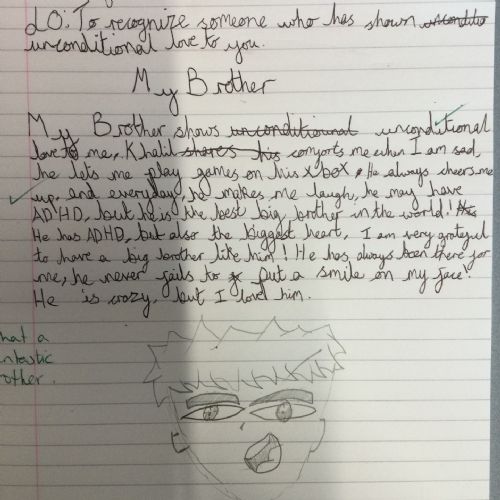 LO: To recognize someone who has shown unconditio
unconditional love to you.
My Brother
My Brother shows unconditiounal unconditional
love to me, Khalil shares his comforts me when I am sad,
he lets me play games on his xbox. He always cheers me
up, and everyday, he makes me laugh, he may have
ADHD, but he is the best big brother in the world!
He has ADHD, but also the biggest heart, I am very grateful
to have a big brother like him! He has always been there for
me, he never fails to put a smile on my face!
He is crazy, but I love him.
hat a
ntastic
rother.